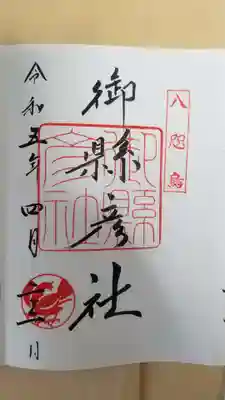 八咫烏
御縣彦社
御縣彦社
令和五年 四月 日